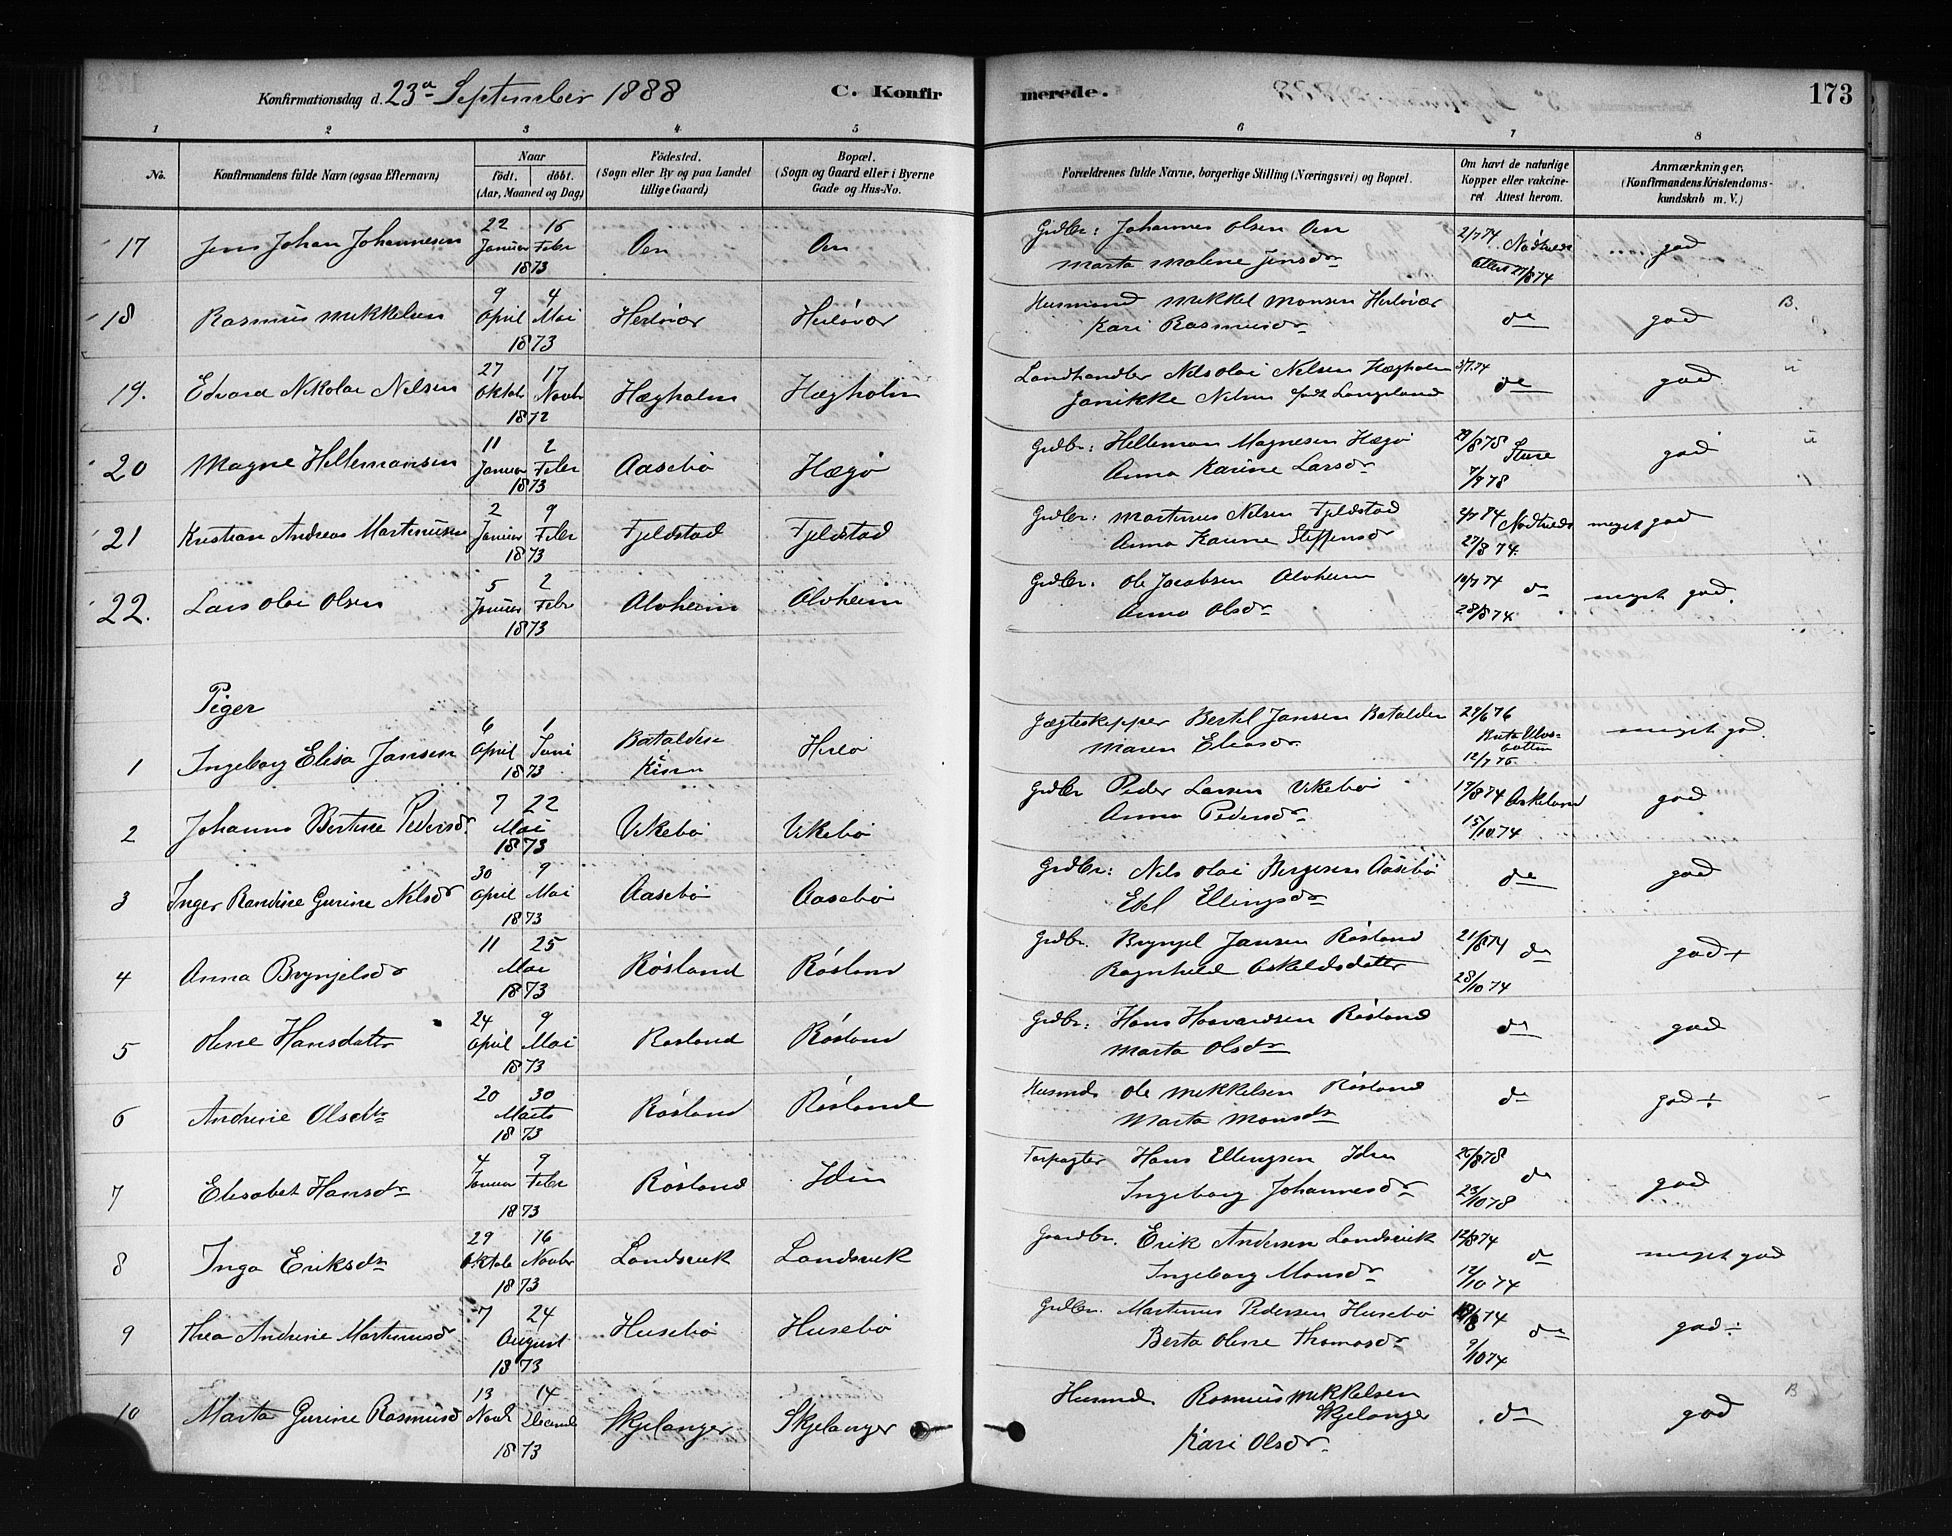 Konfirmationsdag d. 23de September 1888 C. Konfirmerede. 173
1 2 3 4 5 6 7 8
No. Konfirmandens fulde Navn (ogsaa Efternavn) Naar födt. döbt. (Aar, Maaned og Dag) Födested. (Sogn eller By og paa Landet tillige Gaard) Bopæl. (Sogn og Gaard eller i Byerne Gade og Hus-No. Forældrenes fulde Navne, borgerlige Stilling (Næringsvei) og Bopæl. Om havt de naturlige Kopper eller vakcineret Attest herom. Anmærkninger. (Konfirmandens Kristendomskundskab m. V.)
17 Jens Johan Johannesen 22 Januar 16 Febr 1873 Oen Oen Grdbr: Johannes Olsen Oen Marta Malene Jensdr 2/7 74 god
18 Rasmus Mikkelsen 9 April 4 Mai 1873 Herløvær Herløvær Husmand Mikkel Monsen Herløvær Kari Rasmusdr do god B.
19. Edvard Nikolai Nilsen 27 Oktob 17 Novbr 1872 Hægholm Hægholm Landhandler Nils Olai Nilsen Hægholm Janikke Nilsen født Langeland 3/7 74 do god
20 Magne Hellemansen 11 Januar 2 Febr 1873 Aasebø Hægø Grdbr: Helleman Magnesen Hægø Anna Karine Larsdr 29/8 78 Sture 7/9 78 god
21 Kristian Andreas Martinusen 2 Januar 9 Febr 1873 Fjeldstad Fjeldstad Grdbr: Martinus Nilsen Fjeldstad Anna Karine Steffensdr 27/8 74. meget god
22. Lars Olai Olsen 5 Januar 2 Febr 1873 Alvheim Alvheim Grdbr. Ole Jacobsen Alvheim Anna Olsdr 28/8 74 do meget god.
Piger
1 Ingeborg Elisa Jansen 6 April 1 Juni 1873 Batalden Kinn Herlø Jægteskipper Bertel Jansen Batalden Maren Eliasdr 29/6 76 12/7 76 meget god.
2 Johanne Bertine Pedersdr 7 22 Mai 1873 Vikebø Vikebø Grdbr Peder Larsen Vikebø Anna Pedersdr 19/8 74 Askeland 15/10 74 god
3 Inger Randine Gurine Nilsdr 30 April 9 Mai 1873 Aasebø Aasebø Grdbr: Nils Olai Børgesen Aasebø Edel Ellingsdr do god
4 Anna Brynjelsdr 11 25 Mai 1873 Røsland Røsland Grdbr. Brynjel Jansen Røsland Ragnhild Askeldsdatter 21/8 74 do 28/10 74 god +
5 Oline Hansdatter 24 April 9 Mai 1873 Røsland Røsland Grdbr: Hans Haavardsen Røsland Marta Olsdr do god
6 Andrine Olsdtr 20 30 Marts 1873 Røsland Røsland Husmd. Ole Mikkelsen Røsland Marta Monsdtr do god ÷
7 Elisabet Hansdr 4 Januar 9 Febr 1873 Røsland Iden Forpagter Hans Ellingsen Iden Ingeborg Johannesdr 26/8 78 do 23/10 78 god
8 Inga Eriksdtr 29 Oktob 16 Novbr 1873 Landsvik Landsvik Gaardbr. Erik Andersen Landsvik Ingeborg Monsdr 12/8 74 do 12/10 74 meget god
9 Thea Andrine Martinusdr 7 24 August 1873 Husebø Husebø Grdbr. Martinus Pedersen Husebø Berta Oline Thomasdr 19/8 74 do 9/10 74 god ÷
10 Marta Gurine Rasmusd 13 Novb 14 Decemb 1873 Skjelanger Skjelanger Husmd. Rasmus Mikkelsen Skjelanger Kari Olsdr. do god B